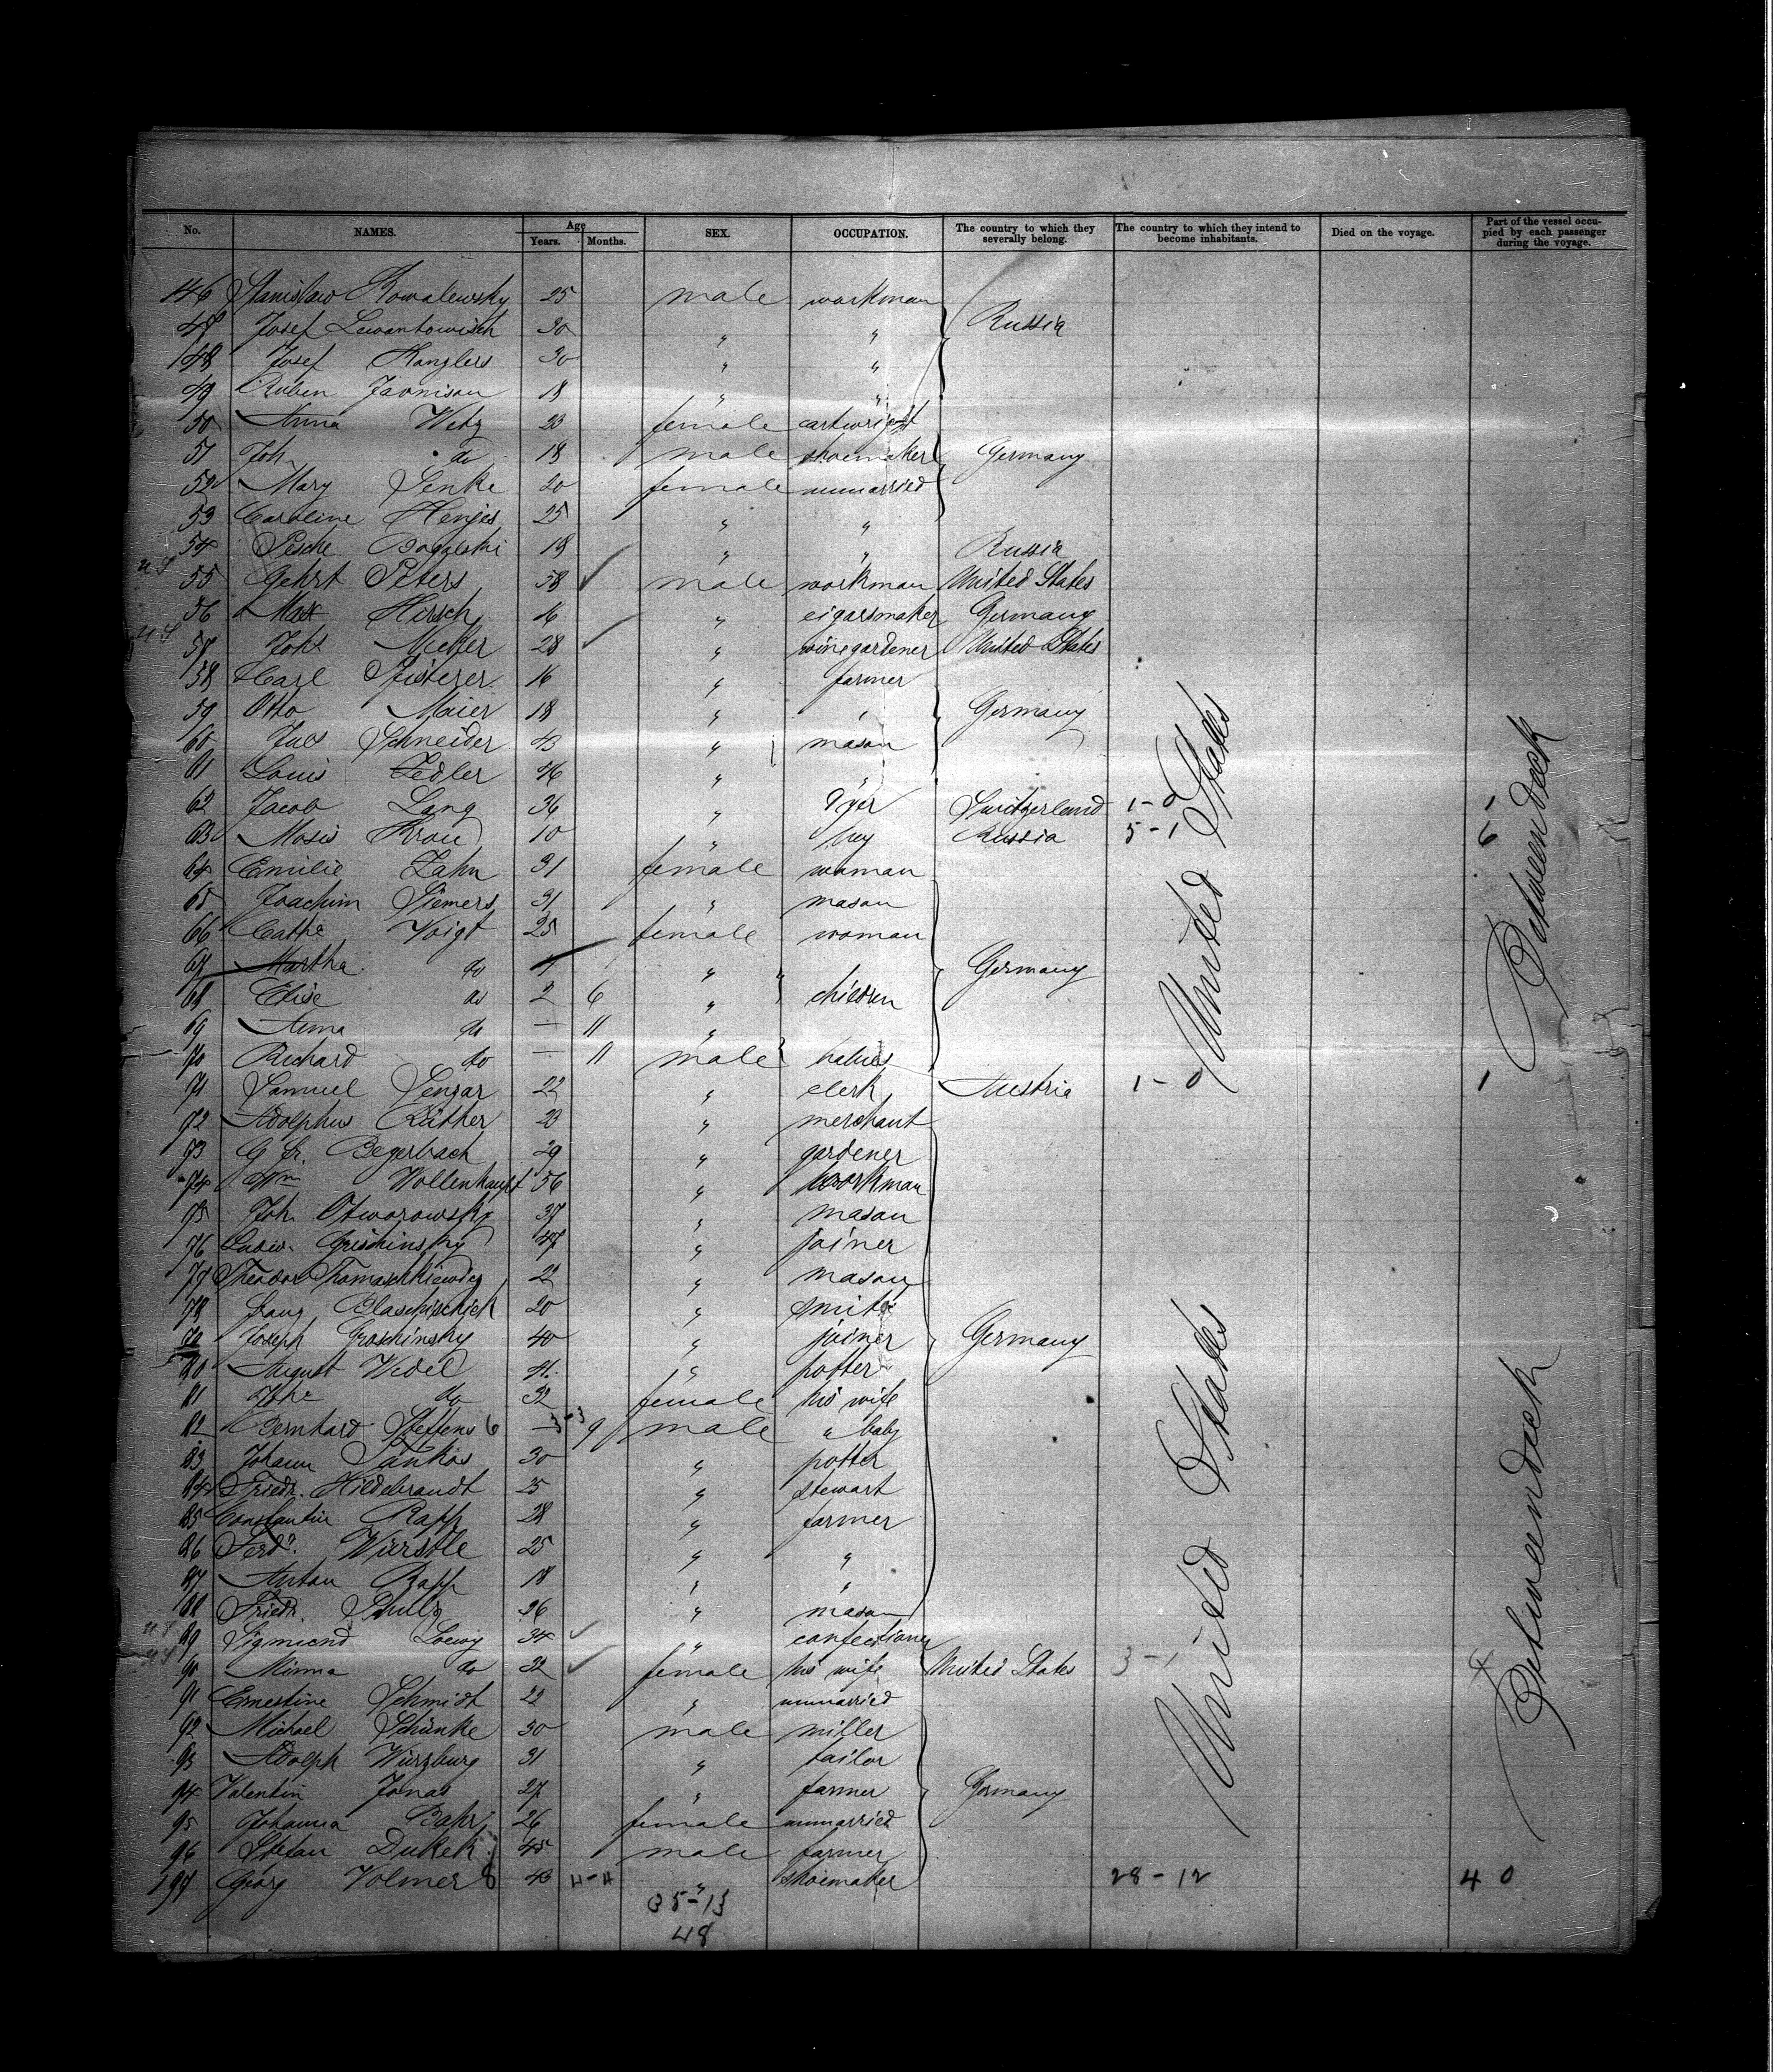 No. NAMES. Age Years. Months. SEX. OCCUPATION. The country to which they severally belong. The country to which they intend to become inhabitants. Died on the voyage. Part of the vessel occupied by each passenger during the voyage.
146 Stanislaw Kowalewsky 25 male workman
47 Josef Lewantowitsch 30 " " Russia
148 Josef Kanglers 30 " "
49 Ruben 18 " "
50 Anna Wetz 23 female cartwright
51 Joh. do 18 male shoemaker Germany
52 Mary Senke 20 female unmarried
53 Caroline Henjes 25 " "
54 Pesche 18 " " Russia
U S 55 Gehrt Peters 58 male workman United States
56 Max Hirsch 16 " cigarsmaker Germany
U S 57 Johs 28 " winegardener United States
158 Carl Pfisterer 16 " farmer
59 Otto Maier 18 " " Germany
60 Jacs Schneider 43 " mason
61 Louis Zedler 46 " "
62 Jacob Lang 36 " Dyer Switzerland 1-0 1
63 Moses Krau 10 " boy Russia 5-1 6
64 Emilie Zahn 31 female woman
65 Joachim Siemers 31 " mason
66 Cathe Voigt 25 female woman
67 Martha do 4 " Germany
68 Elise do 2 6 " children
69 Anna do — 11 "
70 Richard do — 11 male babies
71 Samuel Sengar 22 " clerk Austria 1-0 1
United States
Betweendeck
72 Adolphus Rüther 23 " merchant
73 G Fr. Begerbach 29 " gardener
74 Wm Vollenhaupt 56 " workman
75 Joh. Otworowsky 37 " mason
76 Ludw. Grischinsky 47 " joiner
77 Theodor Thomaschkiewitz 22 " mason
78 Franz 20 " smith
79 Joseph Groschinsky 40 " joiner Germany
80 August Wedel 41 " potter
81 Johe do 32 female his wife
82 Bernhard Steffens 6 — 3-3 9 male " baby
83 Johann Jankos 30 " potter
84 Friedr. Hildebrandt 25 " stewart
85 Constantin Rapp 28 " farmer
86 Ferd. Würstle 25 " "
87 Anton Rapp 18 " "
88 Friedr. Schulz 26 " mason
U S 89 Sigmund Loewy 34 " confectioner
U S 90 Minna do 32 female his wife United States 3-1 4
91 Ernestine Schmidt 22 " unmarried
92 Michael Schünke 30 male miller
93 Adolph Würzburg 31 " tailor
94 Valentin Jonas 27 " farmer Germany
95 Johanna Bahr 26 female unmarried
96 Stefan Dukek 45 male farmer
197 Georg Volmer 8 43 4-4 " shoemaker 28-12 40
United States
Betweendeck
35-13
48